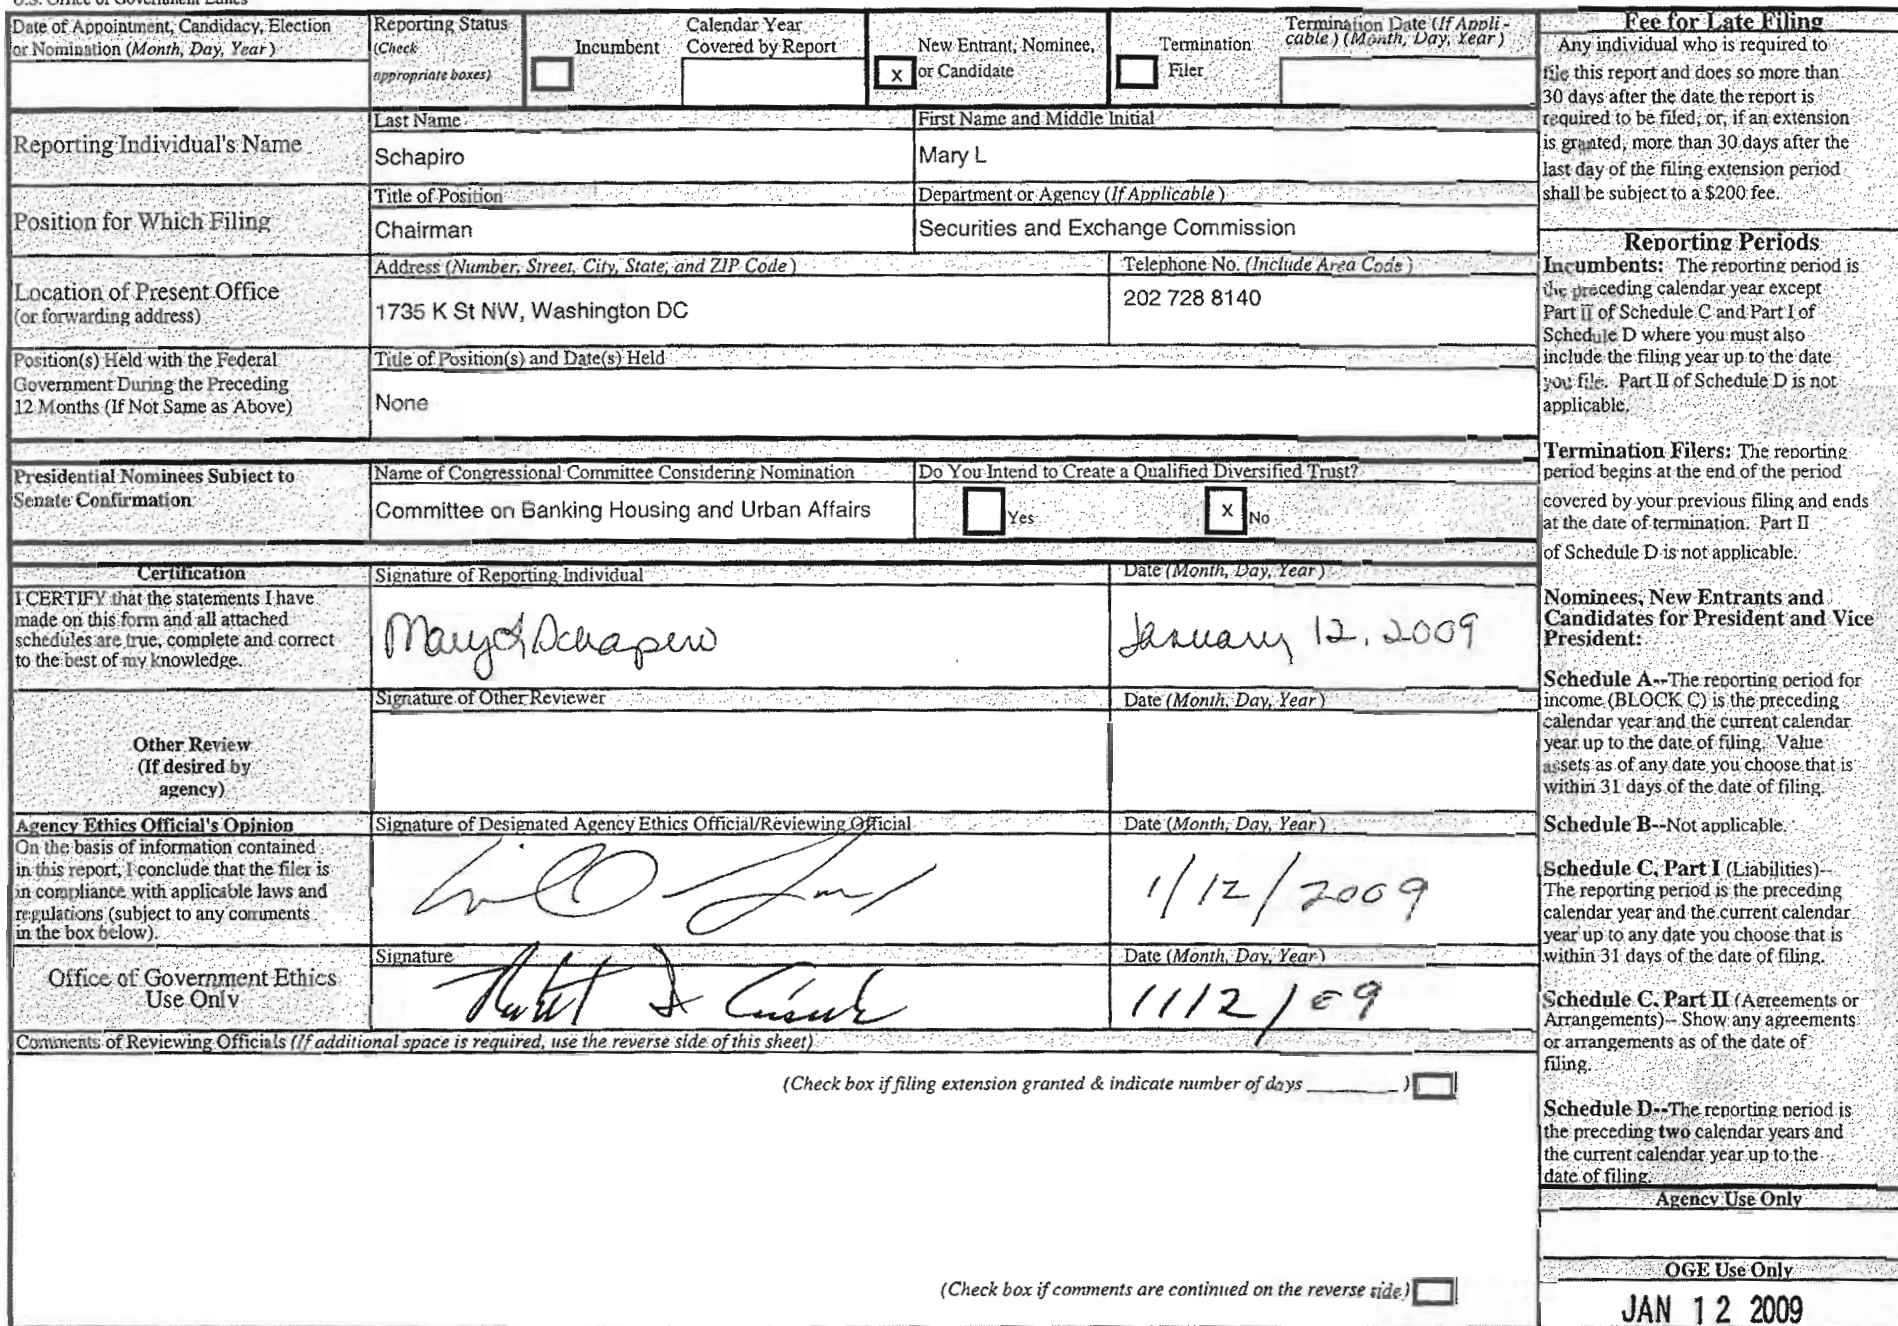 U.S. Office of Government Ethics
Date of Appointment, Candidacy, Election
or Nomination (Month, Day, Year)
Reporting Status
(Check
appropriate boxes)
Incumbent
Calendar Year
Covered by Report
x
New Entrant, Nominee,
or Candidate
Termination
Filer
Termination Date (If Appli-
cable) (Month, Day, Year)
Reporting Individual's Name
Last Name
Schapiro
First Name and Middle Initial
Mary L
Position for Which Filing
Title of Position
Chairman
Department or Agency (If Applicable)
Securities and Exchange Commission
Location of Present Office
(or forwarding address)
Address (Number, Street, City, State, and ZIP Code)
1735 K St NW, Washington DC
Telephone No. (Include Area Code)
202 728 8140
Position(s) Held with the Federal
Government During the Preceding
12 Months (If Not Same as Above)
Title of Position(s) and Date(s) Held
None
Presidential Nominees Subject to
Senate Confirmation
Name of Congressional Committee Considering Nomination
Committee on Banking Housing and Urban Affairs
Do You Intend to Create a Qualified Diversified Trust?
Yes
x No
Certification
I CERTIFY that the statements I have
made on this form and all attached
schedules are true, complete and correct
to the best of my knowledge.
Signature of Reporting Individual
Mary L Schapiro
Date (Month, Day, Year)
January 12, 2009
Other Review
(If desired by
agency)
Signature of Other Reviewer
Date (Month, Day, Year)
Agency Ethics Official's Opinion
On the basis of information contained
in this report, I conclude that the filer is
in compliance with applicable laws and
regulations (subject to any comments
in the box below).
Signature of Designated Agency Ethics Official/Reviewing Official
Date (Month, Day, Year)
1/12/2009
Office of Government Ethics
Use Only
Signature
Date (Month, Day, Year)
1/12/09
Comments of Reviewing Officials (If additional space is required, use the reverse side of this sheet)
(Check box if filing extension granted & indicate number of days ________ )
(Check box if comments are continued on the reverse side)
Fee for Late Filing
Any individual who is required to
file this report and does so more than
30 days after the date the report is
required to be filed, or, if an extension
is granted, more than 30 days after the
last day of the filing extension period
shall be subject to a $200 fee.
Reporting Periods
Incumbents: The reporting period is
the preceding calendar year except
Part II of Schedule C and Part I of
Schedule D where you must also
include the filing year up to the date
you file. Part II of Schedule D is not
applicable.
Termination Filers: The reporting
period begins at the end of the period
covered by your previous filing and ends
at the date of termination. Part II
of Schedule D is not applicable.
Nominees, New Entrants and
Candidates for President and Vice
President:
Schedule A--The reporting period for
income (BLOCK C) is the preceding
calendar year and the current calendar
year up to the date of filing. Value
assets as of any date you choose that is
within 31 days of the date of filing.
Schedule B--Not applicable.
Schedule C, Part I (Liabilities)--
The reporting period is the preceding
calendar year and the current calendar
year up to any date you choose that is
within 31 days of the date of filing.
Schedule C, Part II (Agreements or
Arrangements)-- Show any agreements
or arrangements as of the date of
filing.
Schedule D--The reporting period is
the preceding two calendar years and
the current calendar year up to the
date of filing.
Agency Use Only
OGE Use Only
JAN 12 2009